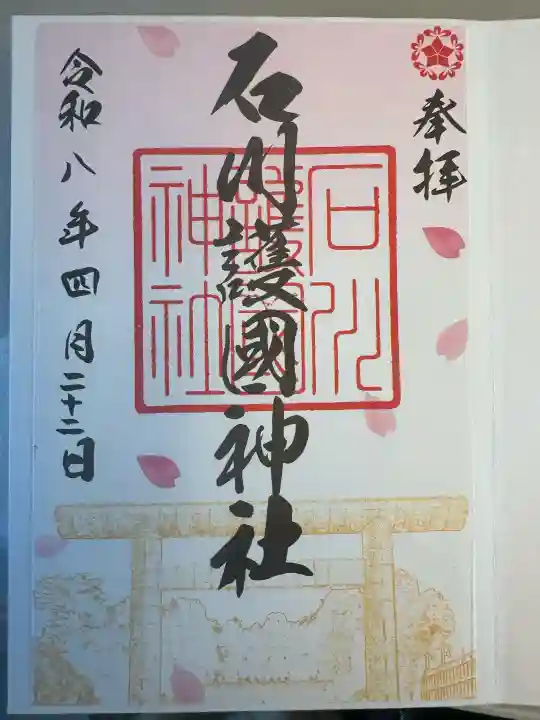 奉拝
石川護國神社
石川
護國
神社
令和八年四月二十二日